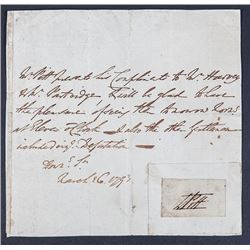 Mr Pitt presents his Compliments to Mr Harvey
& Mr Partridge & will be glad to have
the pleasure of seeing the
at Eleven o'Clock & also the other Gentlemen
included in ye Deputation
Down: St.
March 26. 1793
WPitt